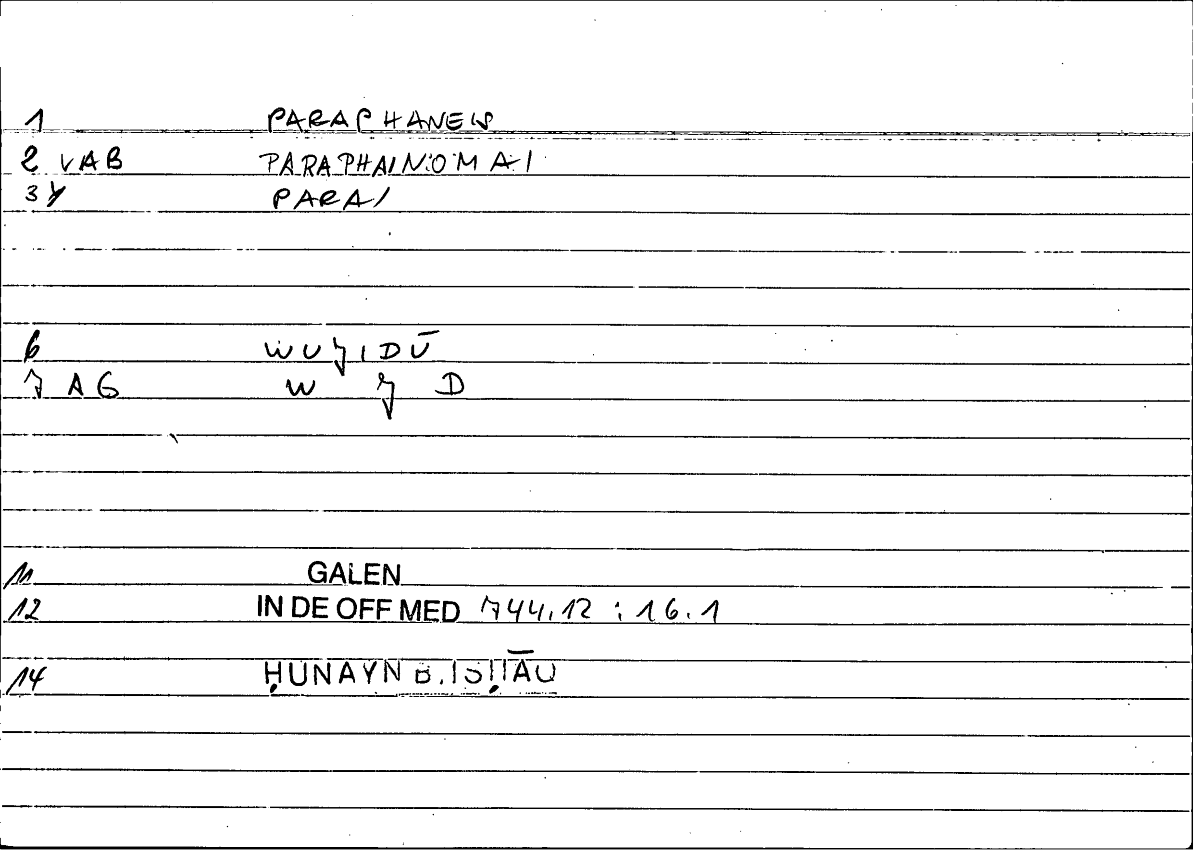 1 PARAPHANEIS
2 VAB PARAPHAINOMAI
3 Y PARAI
6 WUJIDŪ
7 AG W J D
11 GALEN
12 IN DE OFF MED 744.12 : 16.1
14 ḤUNAYN B. ISḤĀQ